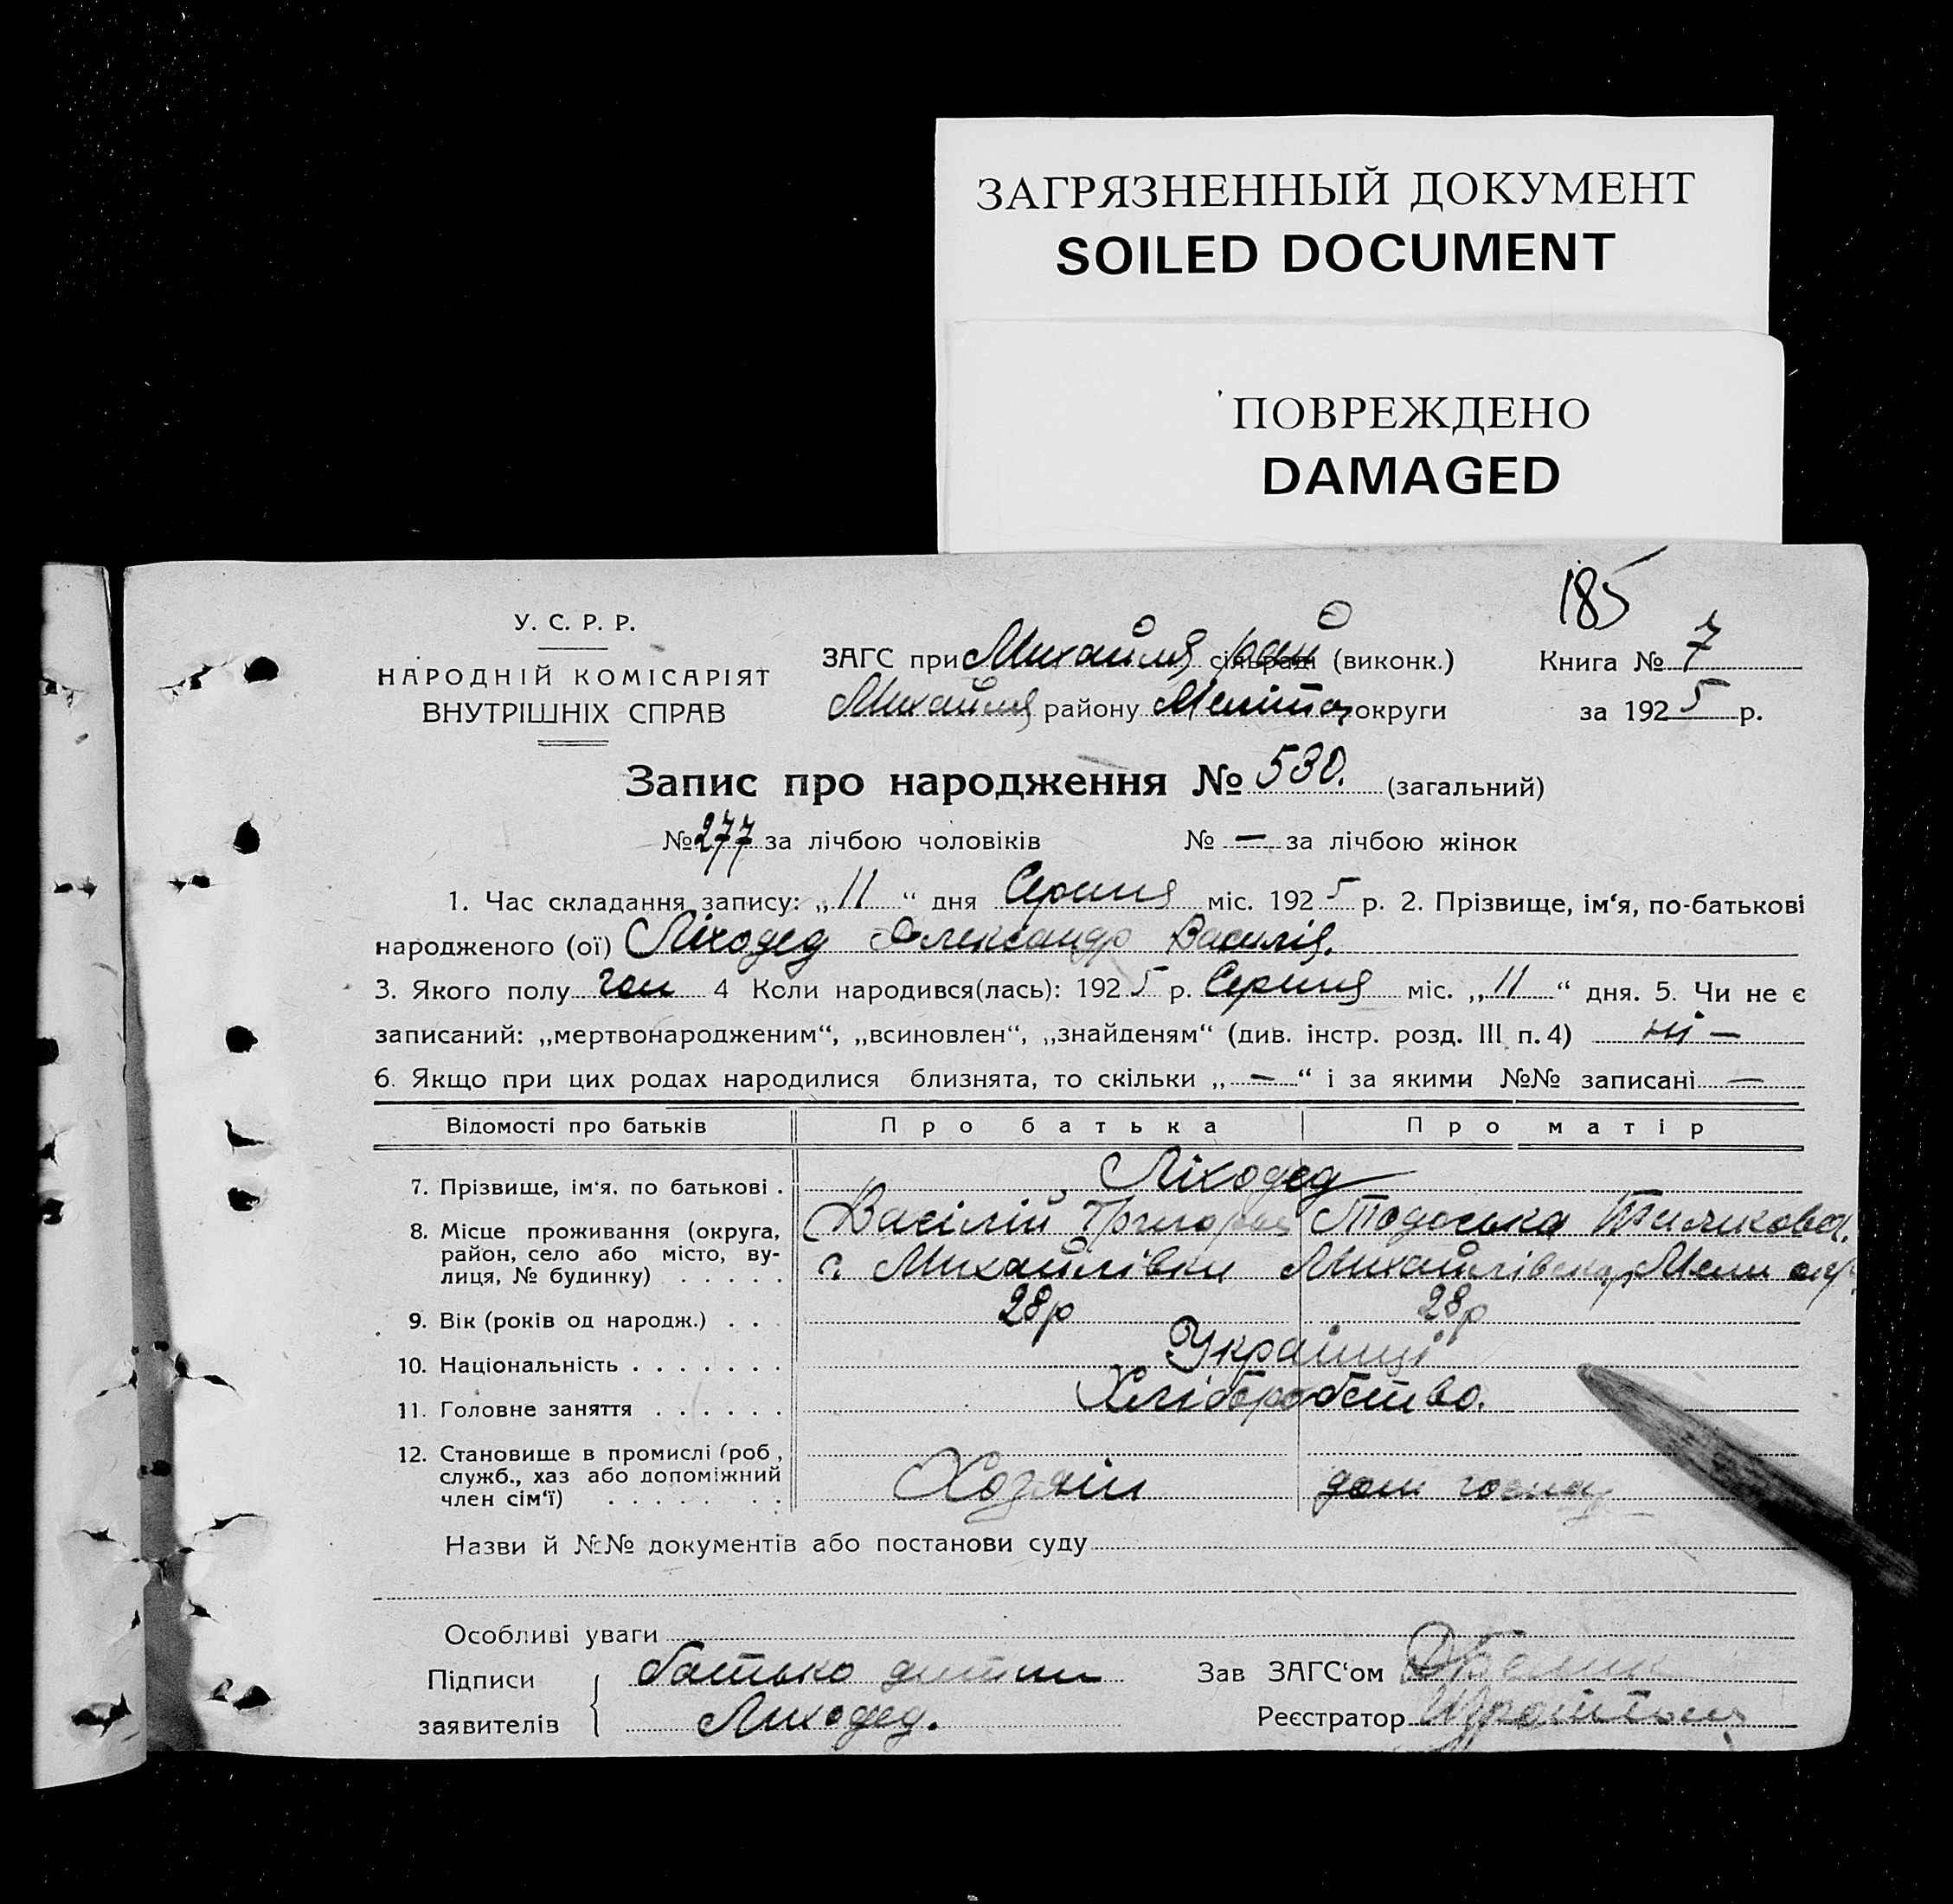 ЗАГРЯЗНЕННЫЙ ДОКУМЕНТ
SOILED DOCUMENT
ПОВРЕЖДЕНО
DAMAGED
185
У. С. Р. Р.
НАРОДНІЙ КОМІСАРІЯТ
ВНУТРІШНІХ СПРАВ
ЗАГС при Михайля рай сільраді (виконк.) Книга № 7
Михайля району Меліто округи за 1925 р.
Запис про народження № 530. (загальний)
№ 277 за лічбою чоловіків № — за лічбою жінок
1. Час складання запису: „11“ дня Серпня міс. 1925 р. 2. Прізвище, ім‘я, по-батькові
народженого (ої) Ліходед Александр Василів.
3. Якого полу чол 4 Коли народився(лась): 1925 р. Серпня міс. „11“ дня. 5. Чи не є
записаний: „мертвонародженим“, „всиновлен“, „знайденям“ (див. інстр. розд. III п. 4) ні —
6. Якщо при цих родах народилися близнята, то скільки „—“ і за якими №№ записані —
Відомості про батьків Про батька Про матір
7. Прізвище, ім‘я, по батькові . Ліходед
Василій Григоров Тодоська
8. Місце проживання (округа, район, село або місто, вулиця, № будинку) . . . . . с. Михайлівки Михайлівськ р Мели окр
9. Вік (років од народж.) . . . 28р 28р
10. Національність . . . . . . . Українці
11. Головне заняття . . . . . . Хліборобство.
12. Становище в промислі (роб, служб., хаз або допоміжний член сім‘ї) . . . . . . . Хозяїн дом господ
Назви й №№ документів або постанови суду
Особливі уваги
Підписи заявителів { батько дитини
Лиходед.
Зав ЗАГС‘ом
Реєстратор